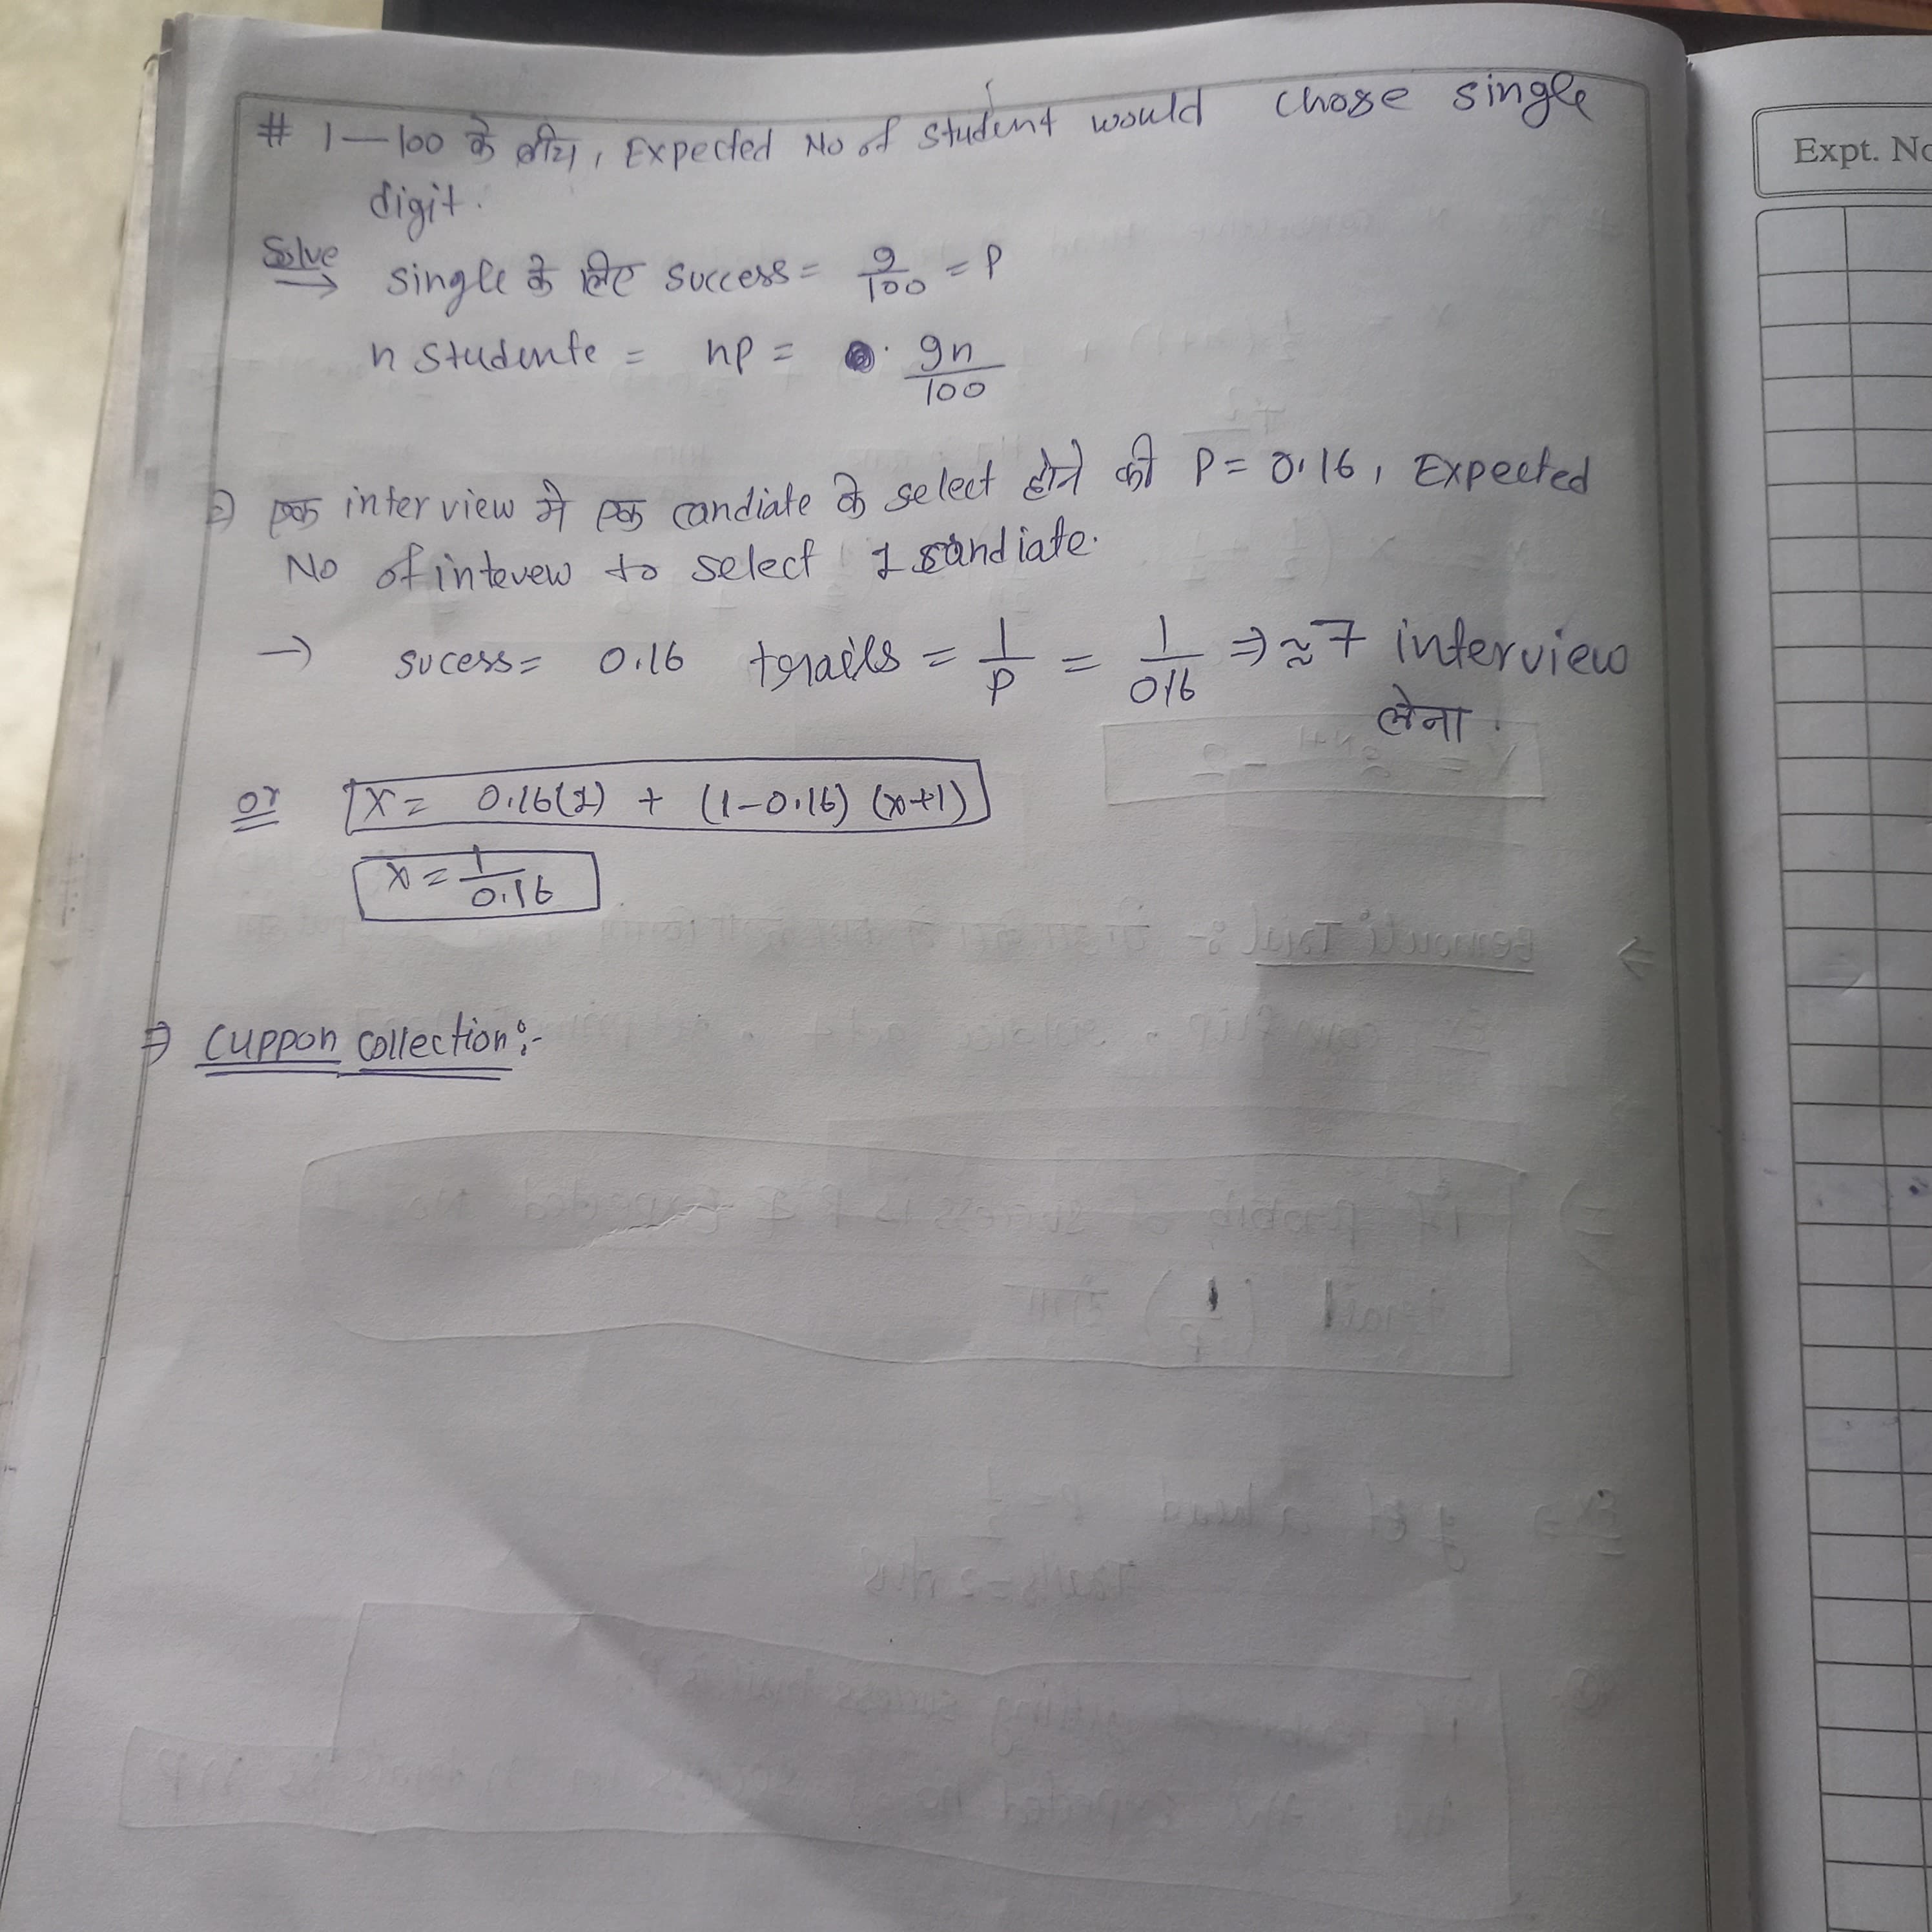 # 1—100 के बीच, Expected No of student would chose single
digit.
Solve
→ single के लिए success = 9/100 = P
n studente = np = 9n/100
⇒ एक interview मे एक candiate के select होने की P = 0.16, Expected
No of intevew to select 1 candiate.
→ sucess = 0.16 trails = 1/P = 1/0.16 ⇒ ≈ 7 interview
लेना.
or x = 0.16(1) + (1-0.16) (x+1)
x = 1/0.16
⇒ Cuppon collection :-
Expt. No